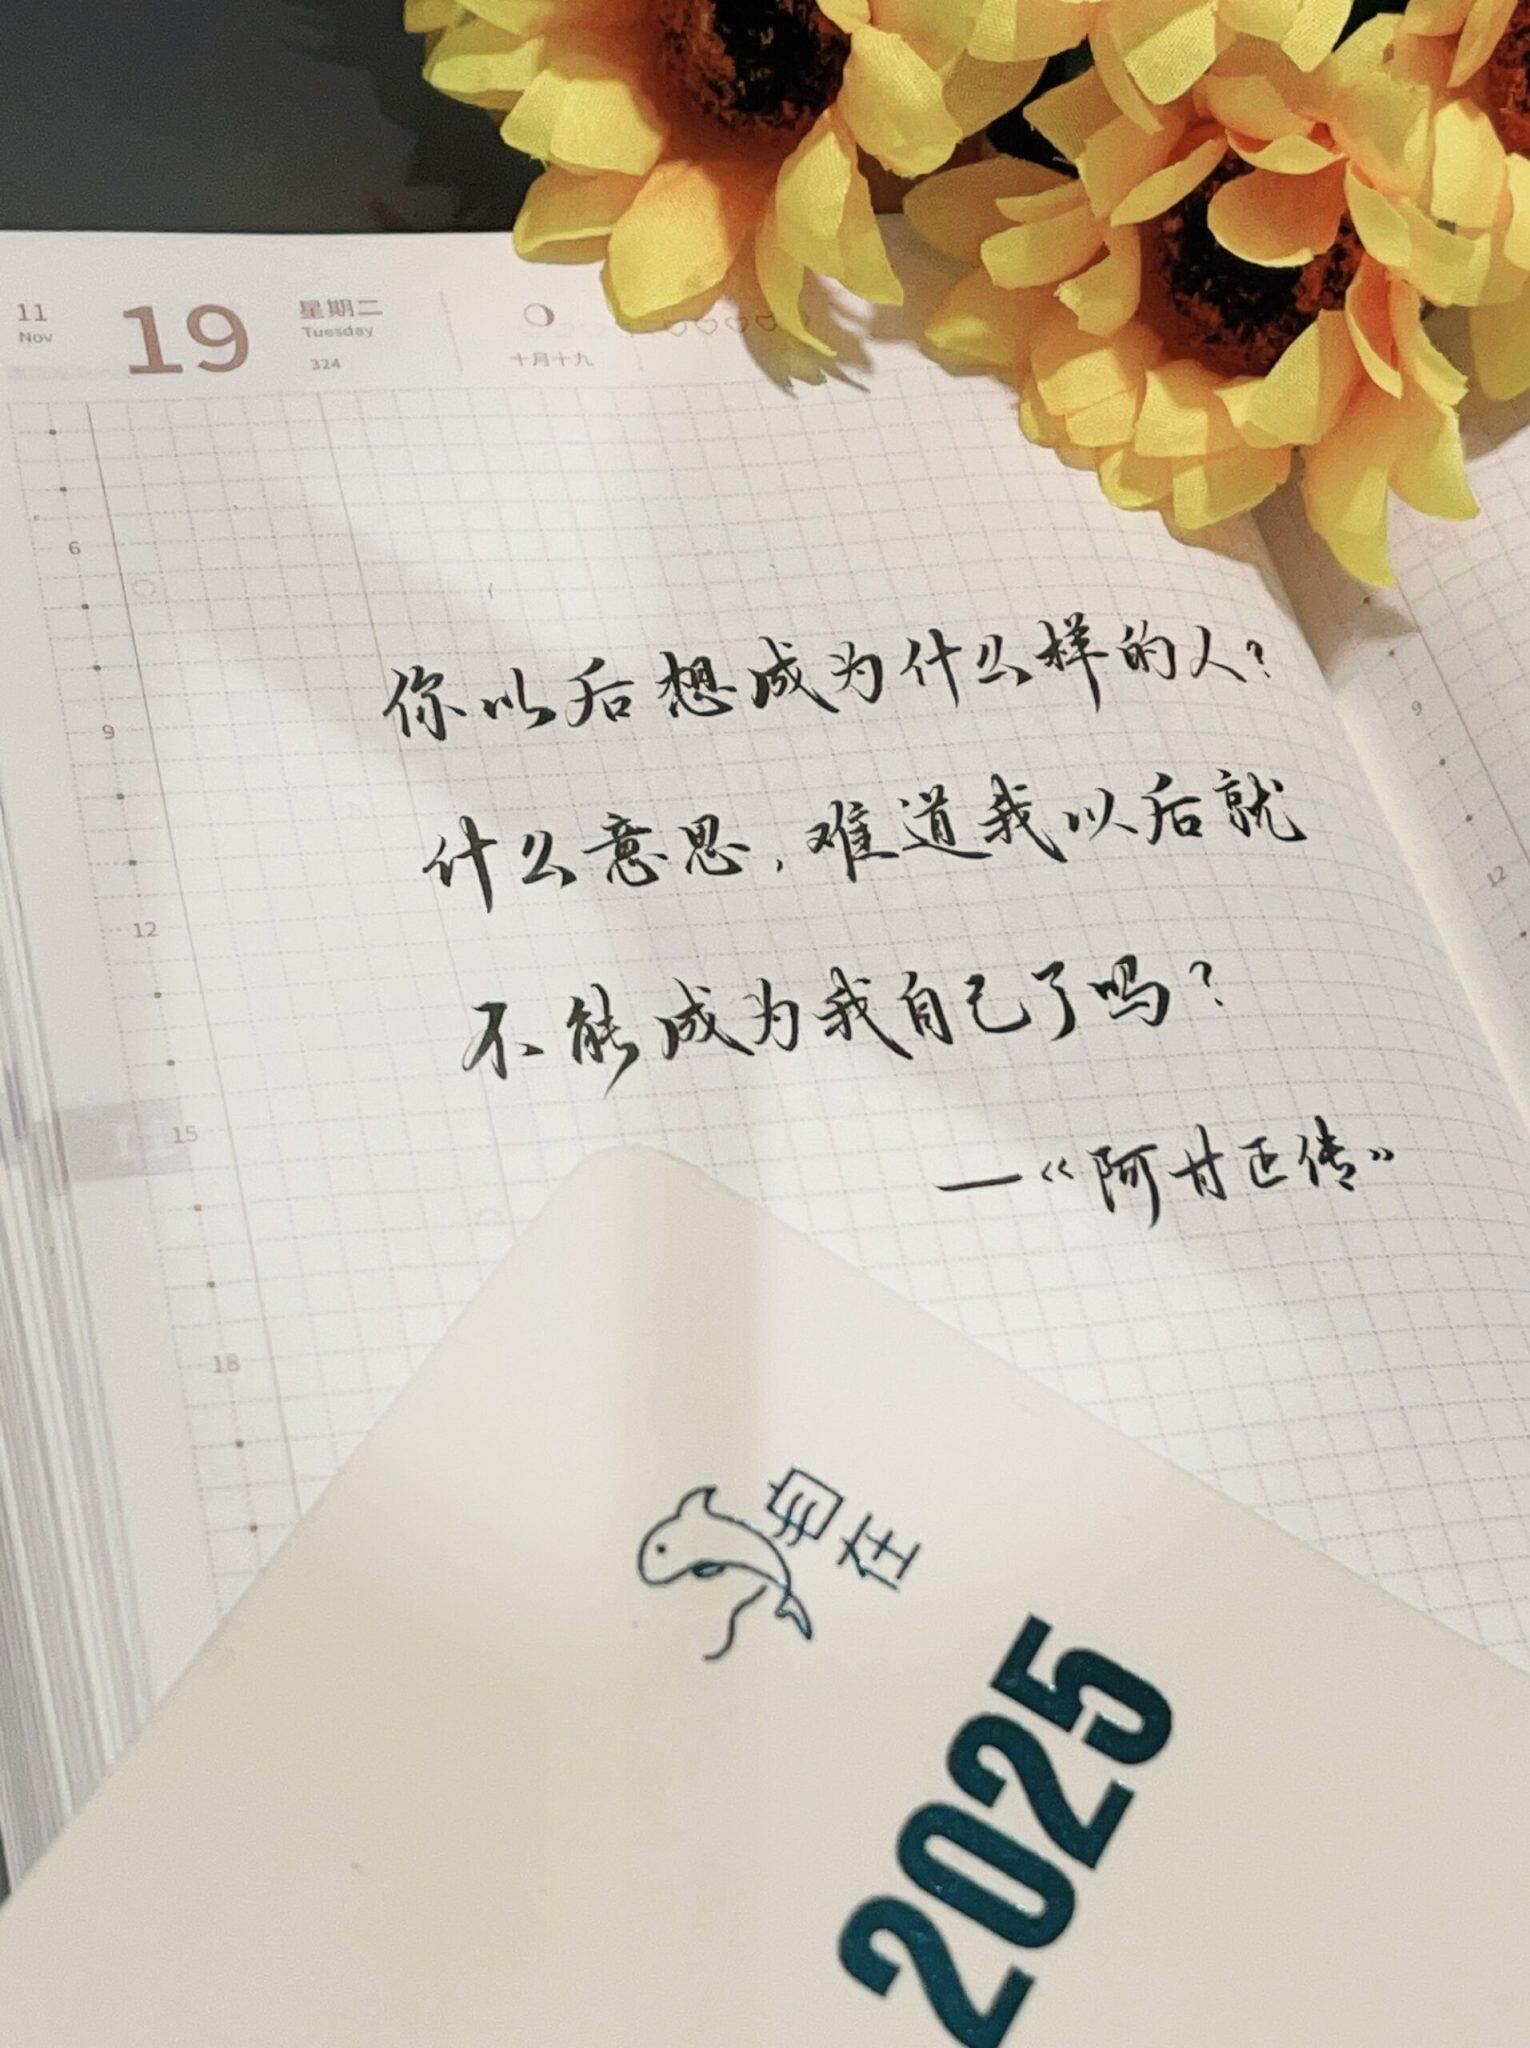 11
Nov
19
星期二
Tuesday
324
十月十九
6
9
12
15
18
9
12
你以后想成为什么样的人？
什么意思，难道我以后就
不能成为我自己了吗？
—《阿甘正传》
自在
2025